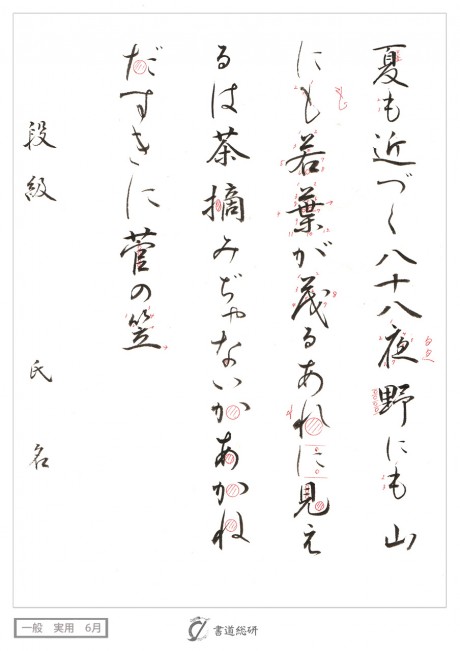 夏も近づく八十八夜野にも山
にも若葉が茂るあれに見え
るは茶摘みぢゃないかあかね
だすきに菅の笠
段級 氏名
一般 実用 6月
書道総研